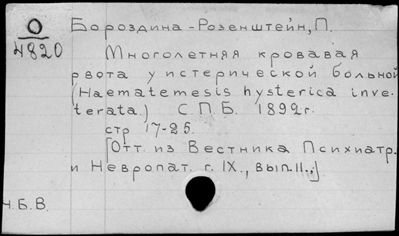 О
4820
Бороздина-Розенштейн, П.
Многолетняя кровавая
рвота у истерической больной
(Haematemesis hysterica inve-
terata.) С.П.Б. 1892 г.
стр 17-25.
[Отт. из Вестника Психиатр.
и Невропат. г. IX., вып. II.,]
Ч.Б.В.